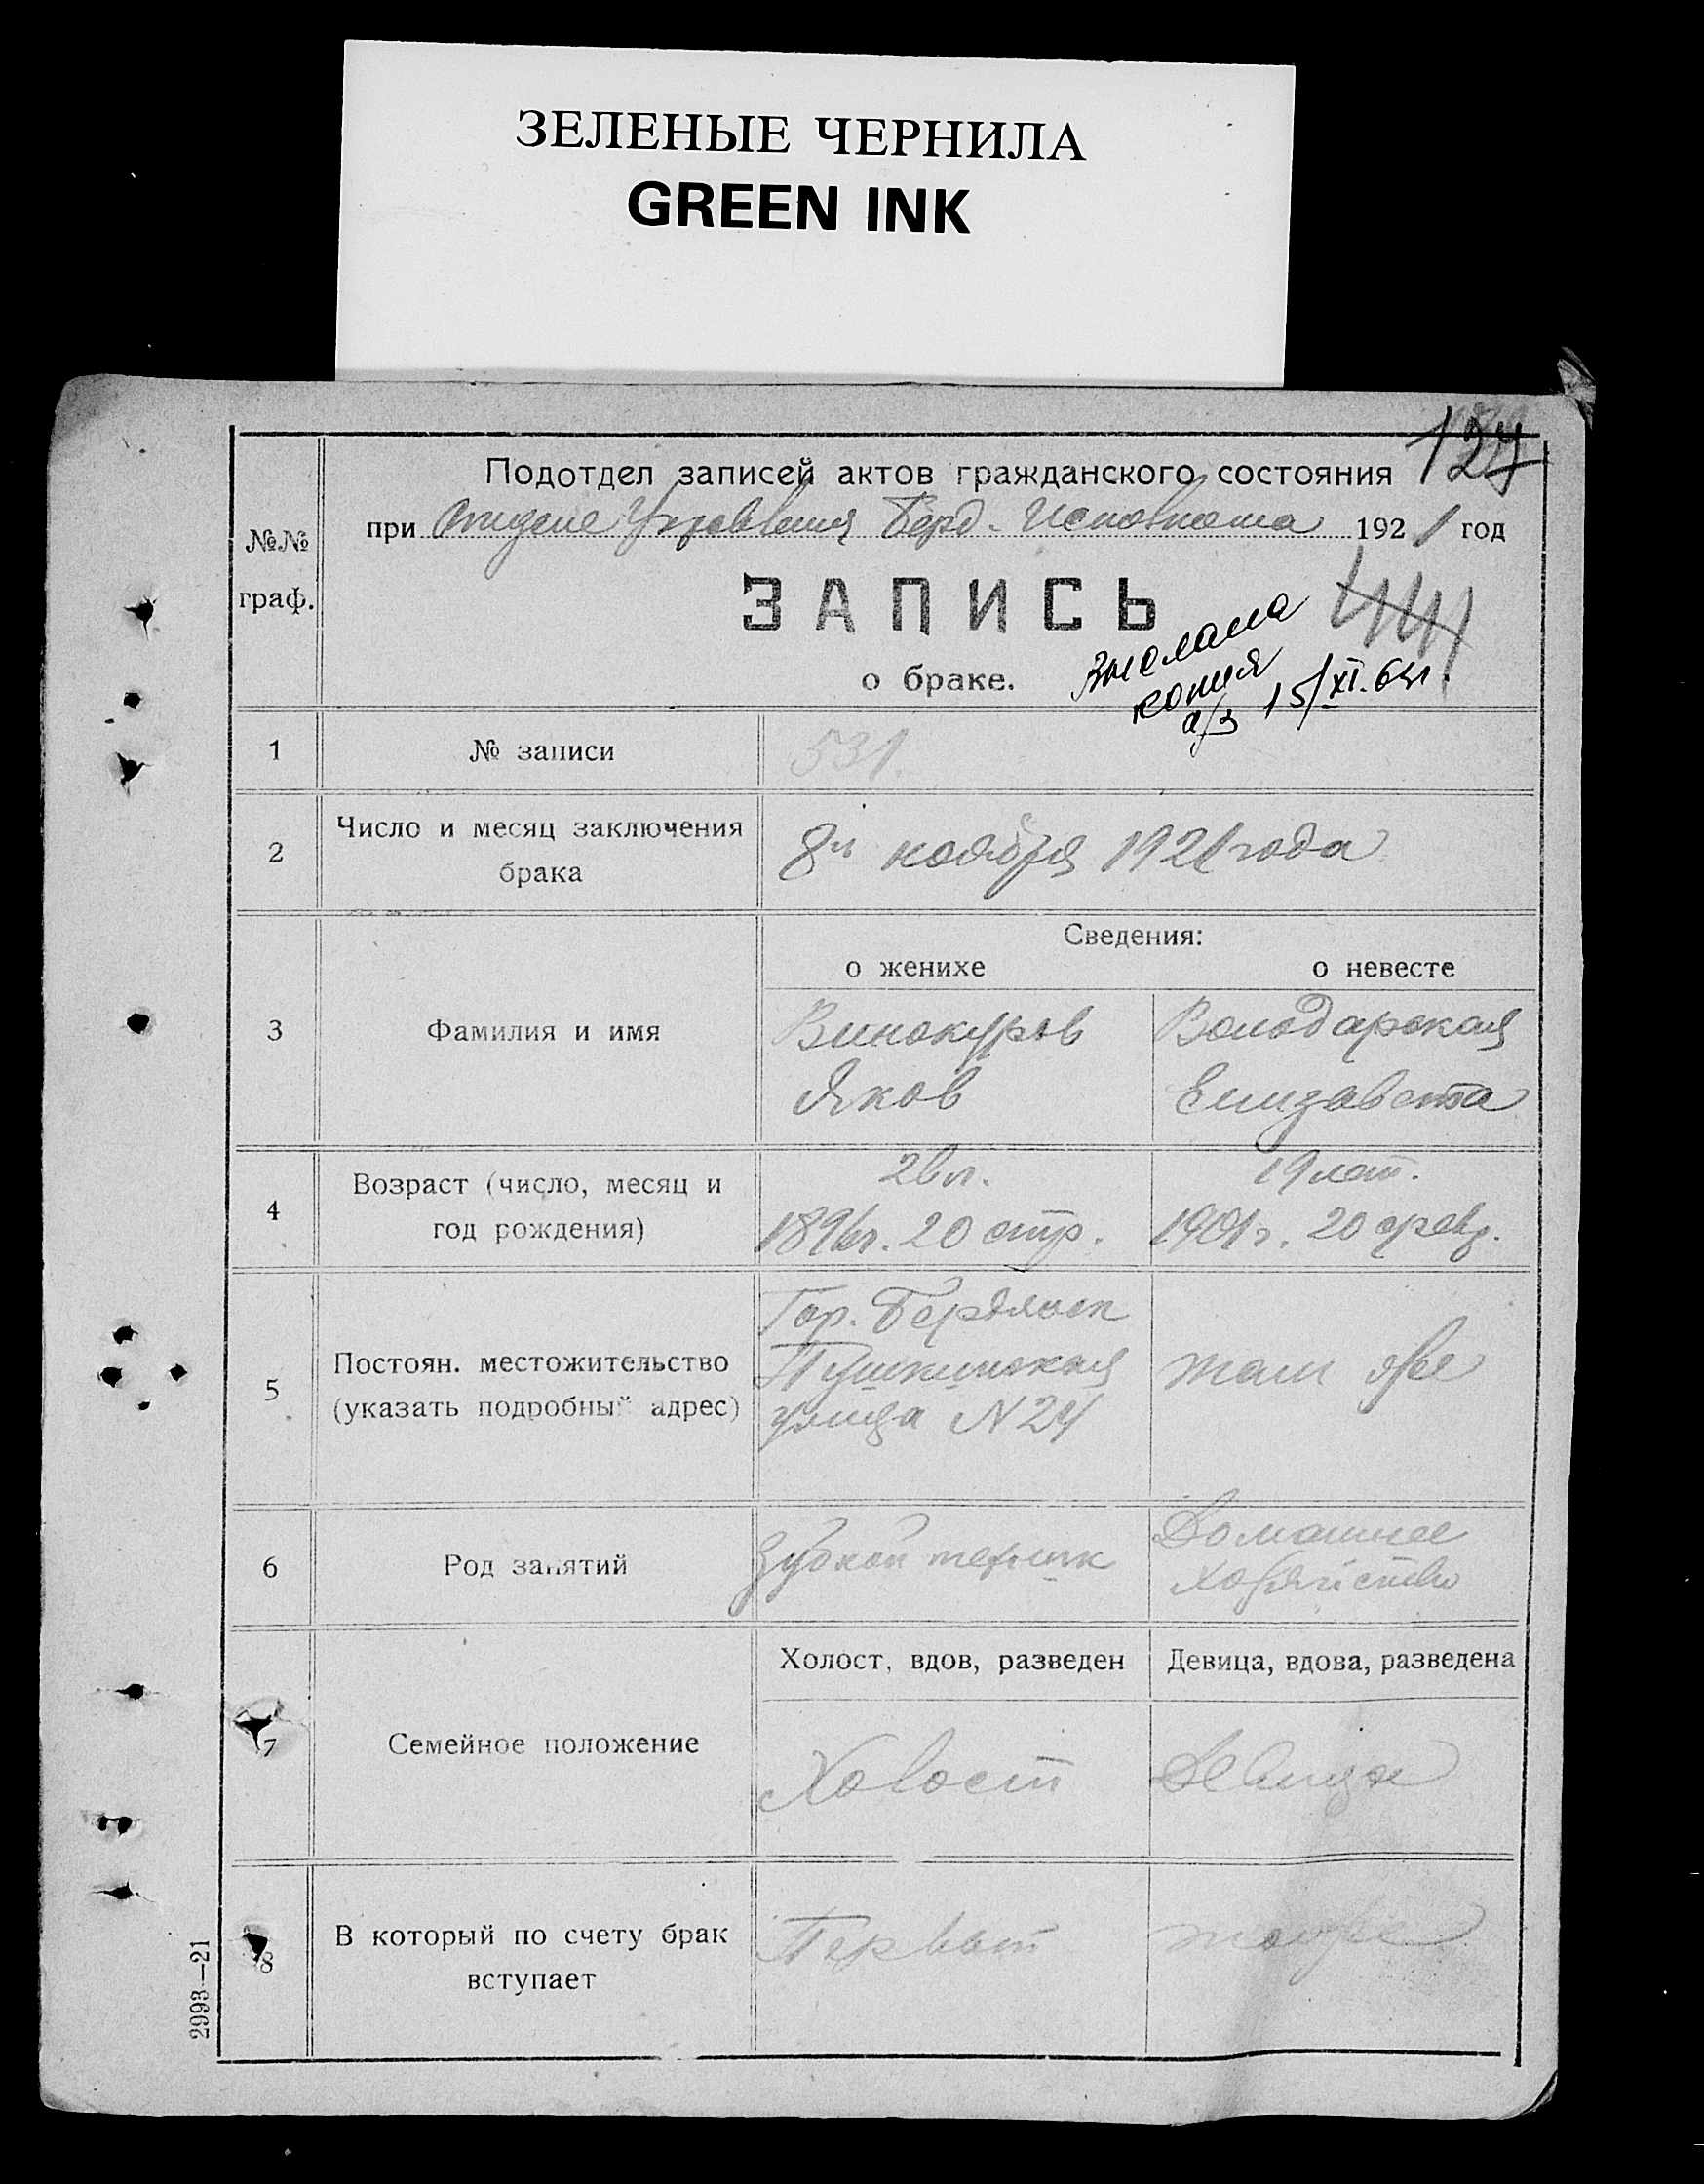 ЗЕЛЕНЫЕ ЧЕРНИЛА
GREEN INK
127
Подотдел записей актов гражданского состояния
при Отделе Управления Берд. Исполкома 1921 год
№№
граф.
ЗАПИСЬ
о браке.
Выслана
копия
а/з 15/XI.
1
№ записи
531.
2
Число и месяц заключения
брака
8го ноября 1921 года
Сведения:
о женихе
о невесте
3
Фамилия и имя
Винокуров
Яков
Володарская
Елизавета
4
Возраст (число, месяц и
год рождения)
19 лет.
20
1901 г. 20 февр.
5
Постоян. местожительство
(указать подробный адрес)
Гор. Бердянск
Пушкинская
улица N 24
там же
6
Род занятий
Зубной техник
Домашнее
хозяйство
7
Семейное положение
Холост, вдов, разведен
Девица, вдова, разведена
Холост
Девица
8
В который по счету брак
вступает
Первый
тоже
2993—21